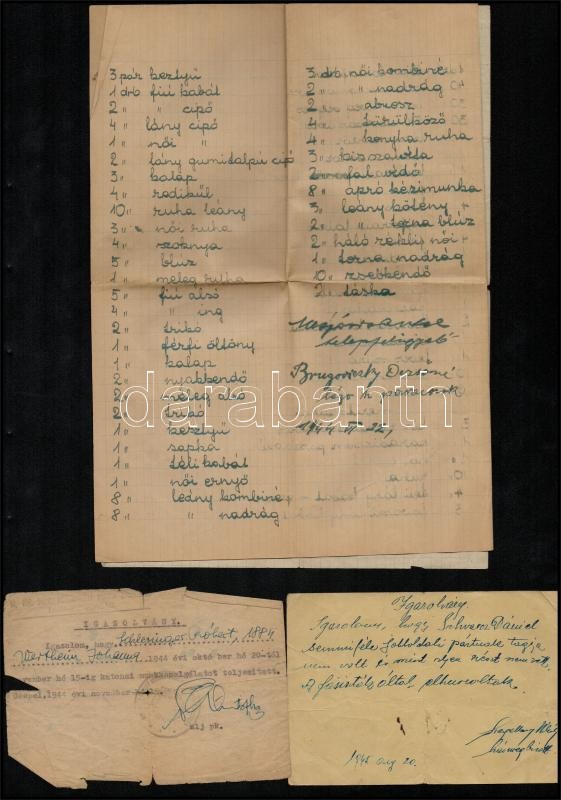 3 pár keztyű
1 drb fiú kabát
2 " " cipő
4 " lány cipő
1 " női "
2 " lány gumitalpú cipő
3 " kalap
4 " redikül
10 " ruha leány
3 " női ruha
4 " szoknya
5 " blúz
1 " meleg ruha
5 " fiú alsó
4 " " ing
2 " trikó
1 " férfi öltöny
1 " kalap
2 " nyakkendő
2 " meleg alsó
2 " trikó
1 " keztyű
1 " sapka
1 " téli kabát
1 " női ernyő
8 " leány kombiné
8 " " nadrág
3 drb női kombiné
2 " " nadrág
2 " abrosz
4 " törülköző
4 " konyha ruha
3 " kis szalvéta
2 " fal védő
8 " apró kézimunka
3 " leány kötény
2 " torna blúz
2 " háló réklij női
1 " torna nadrág
10 " zsebkendő
2 " táska
1944
darabanth
IGAZOLVÁNY.
Igazolom, hogy Schlesinger Róbert, 1884
Wertheim Johanna 1944 évi október hó 20-tól
november hó 15-ig katonai munkaszolgálatot teljesített.
Csepel, 1944 évi november
Igazolvány.
Igazolom, hogy Schwarz Dániel
semmiféle jobboldali pártnak tagja
nem volt és mint olyan részt nem vett.
A fasiszták által elhurcoltatott.
1945 aug 20.